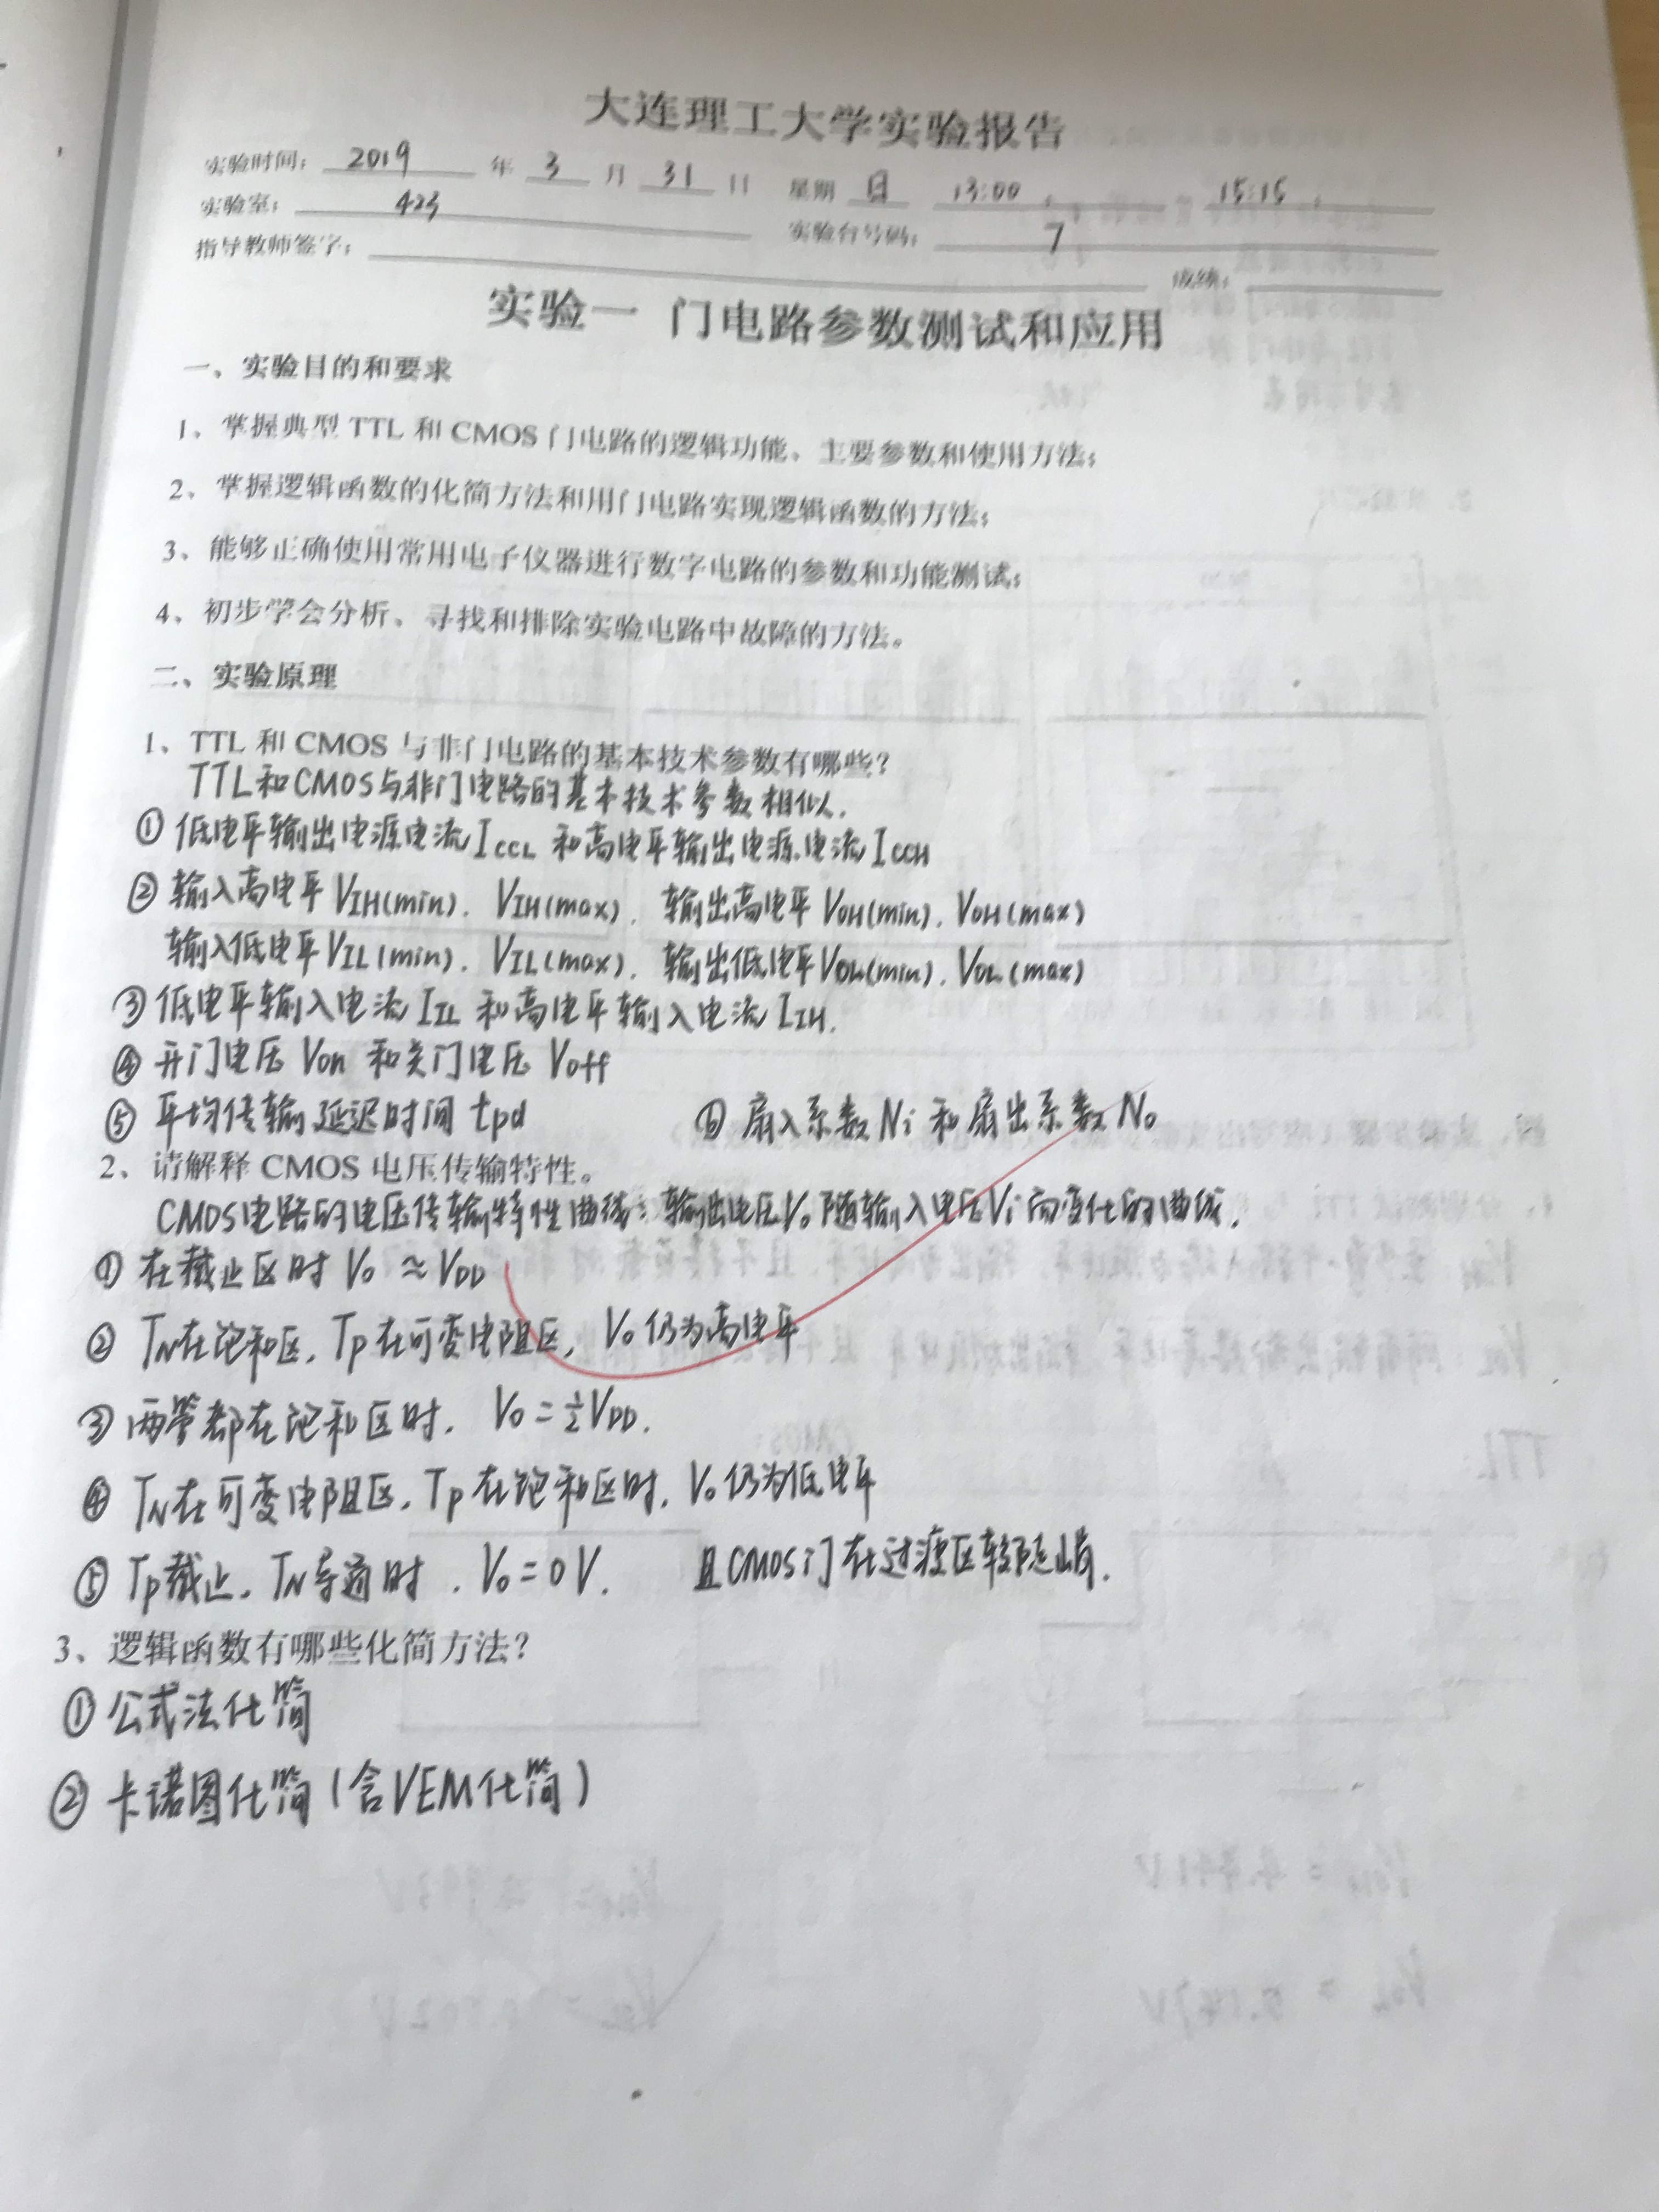 大连理工大学实验报告
实验时间： 2019 年 3 月 31 日 星期 日 13:00 15:15
实验室： 423 实验台号码： 7
指导教师签字： 成绩：
实验一 门电路参数测试和应用
一、实验目的和要求
1、掌握典型 TTL 和 CMOS 门电路的逻辑功能、主要参数和使用方法；
2、掌握逻辑函数的化简方法和用门电路实现逻辑函数的方法；
3、能够正确使用常用电子仪器进行数字电路的参数和功能测试；
4、初步学会分析、寻找和排除实验电路中故障的方法。
二、实验原理
1、TTL 和 CMOS 与非门电路的基本技术参数有哪些？
TTL和CMOS与非门电路的基本技术参数相似.
① 低电平输出电源电流 ICCL 和高电平输出电源电流 ICCH
② 输入高电平 VIH(min). VIH(max). 输出高电平 VOH(min). VOH(max)
输入低电平 VIL(min). VIL(max). 输出低电平 VOL(min). VOL(max)
③ 低电平输入电流 IIL 和高电平输入电流 IIH.
④ 开门电压 Von 和关门电压 Voff
⑤ 平均传输延迟时间 tpd ⑥ 扇入系数 Ni 和扇出系数 No
2、请解释 CMOS 电压传输特性。
CMOS电路的电压传输特性曲线：输出电压Vo随输入电压Vi而变化的曲线.
① 在截止区时 Vo ≈ VDD
② TN在饱和区, TP在可变电阻区, Vo仍为高电平
③ 两管都在饱和区时. Vo = ½VDD.
④ TN在可变电阻区, TP在饱和区时, Vo仍为低电平
⑤ TP截止, TN导通时, Vo = 0V. 且CMOS门在过渡区较陡峭.
3、逻辑函数有哪些化简方法？
① 公式法化简
② 卡诺图化简(含VEM化简)